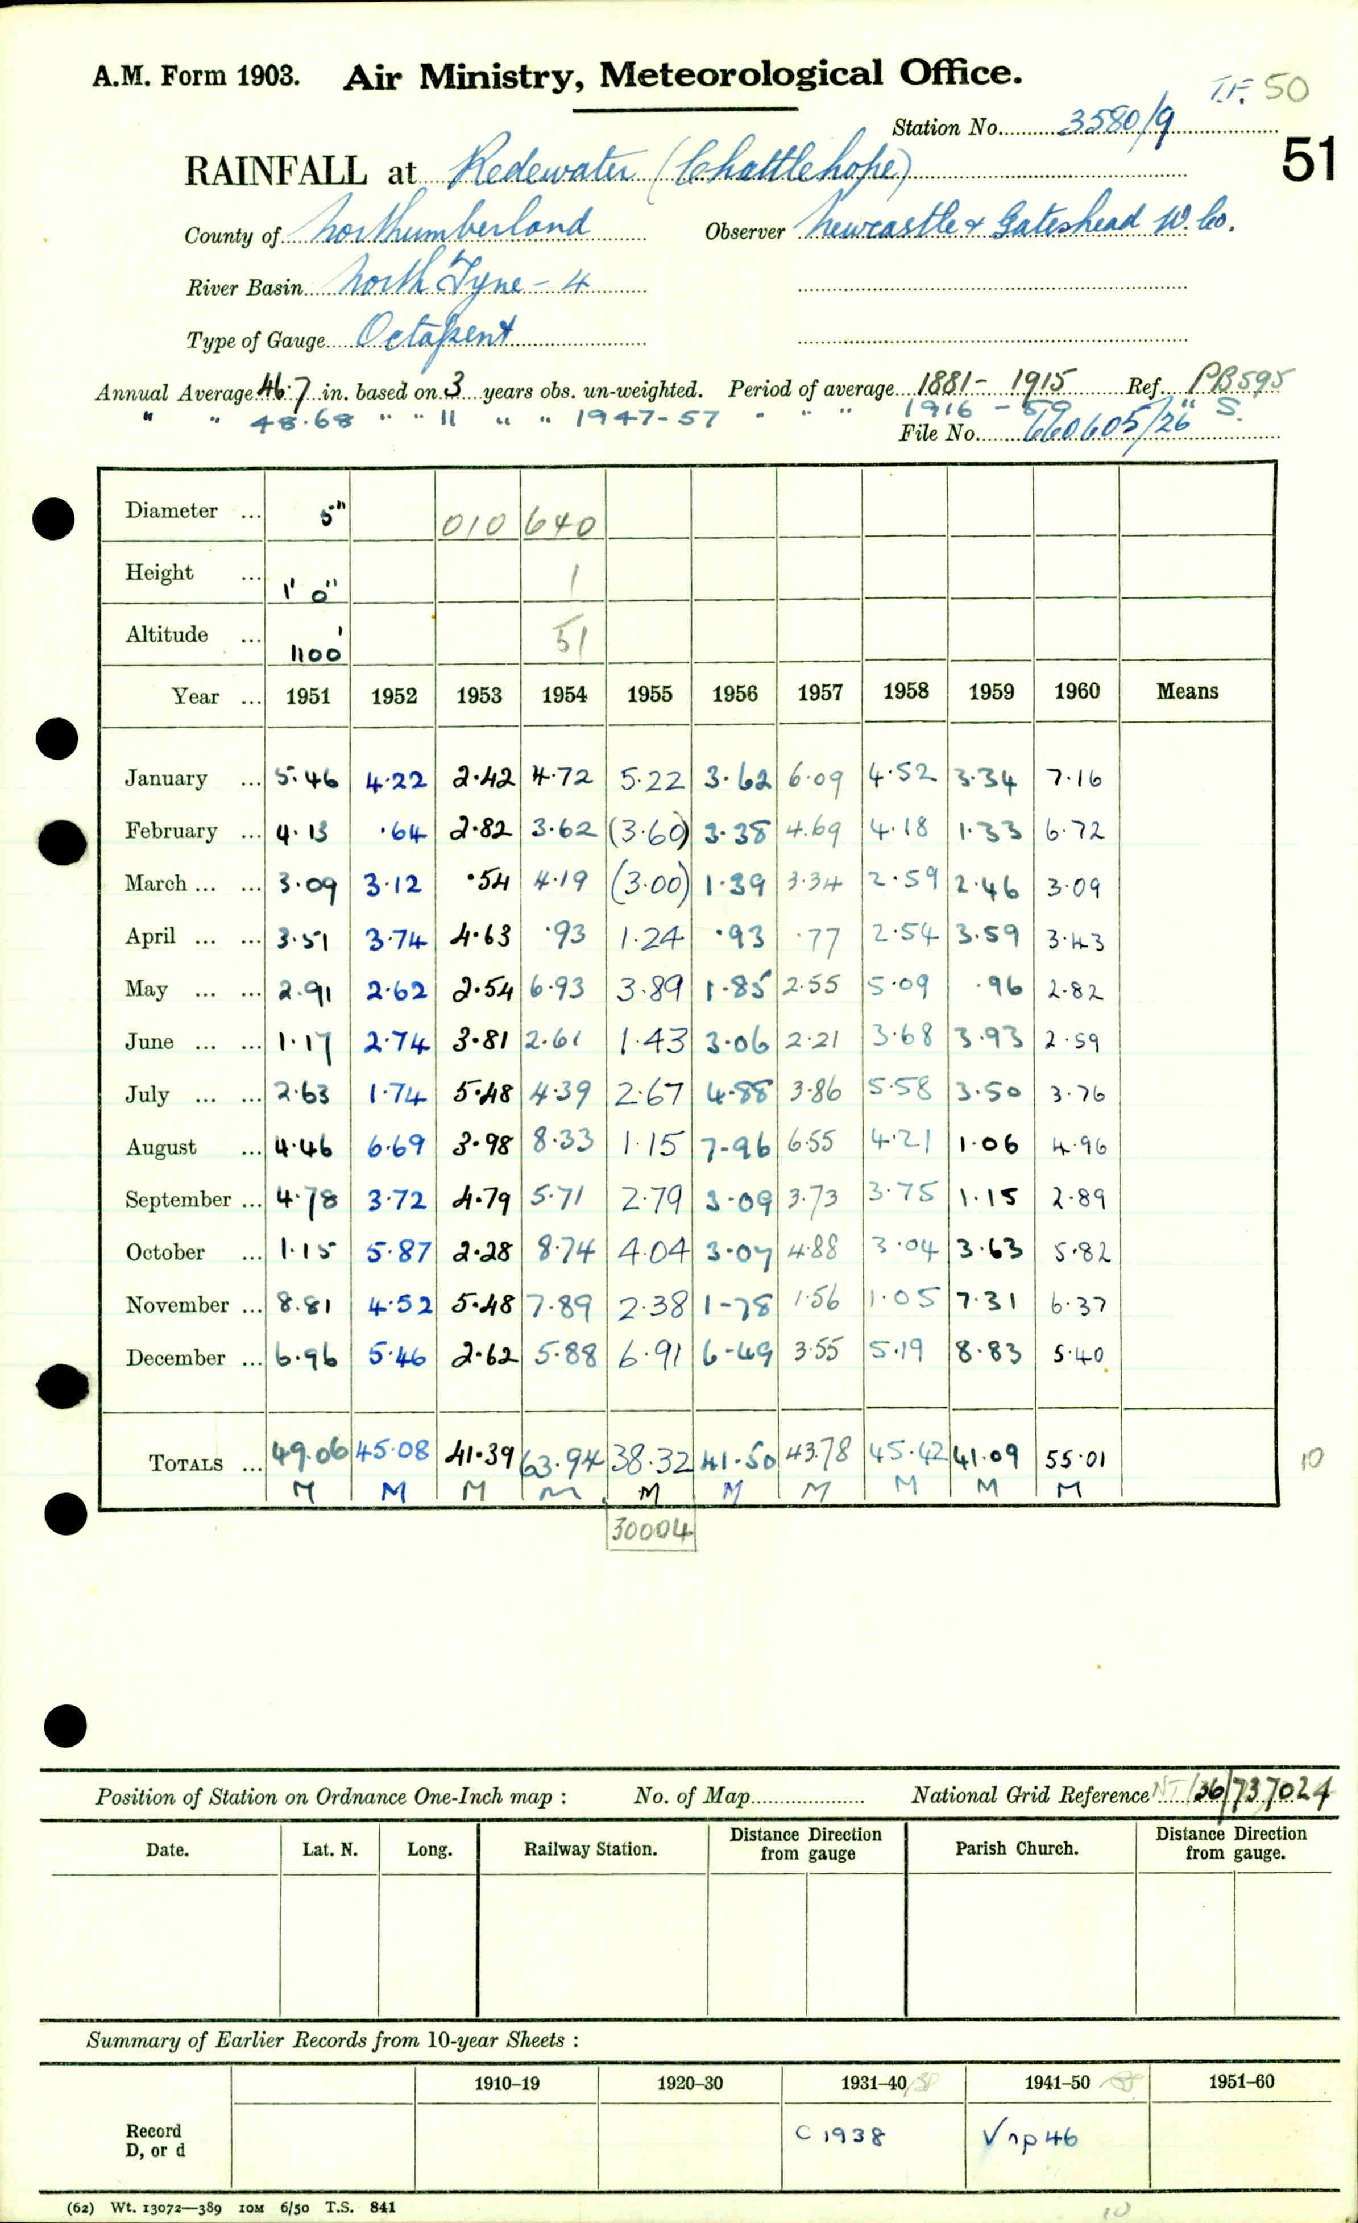 A.M. Form 1903. Air Ministry, Meteorological Office.
T.F. 50
Station No. 3580/9
51
RAINFALL at Redewater (Chattlehope)
County of Northumberland Observer Newcastle & Gateshead W. Co.
River Basin North Tyne - 4
Type of Gauge Octapent
Annual Average 46.7 in. based on 3 years obs. un-weighted. Period of average 1881- 1915 Ref. PB595
" " 48.68 " " 11 " " 1947-57 " " " 1916 - 50 " S.
File No. 660605/26
Diameter ... 5" 010 640
Height ... 1' 0" 1
Altitude ... 1100' 51
Year ... 1951 1952 1953 1954 1955 1956 1957 1958 1959 1960 Means
January ... 5.46 4.22 2.42 4.72 5.22 3.62 6.09 4.52 3.34 7.16
February ... 4.13 .64 2.82 3.62 (3.60) 3.38 4.69 4.18 1.33 6.72
March ... ... 3.09 3.12 .54 4.19 (3.00) 1.39 3.34 2.59 2.46 3.09
April ... ... 3.51 3.74 4.63 .93 1.24 .93 .77 2.54 3.59 3.43
May ... ... 2.91 2.62 2.54 6.93 3.89 1.85 2.55 5.09 .96 2.82
June ... ... 1.17 2.74 3.81 2.61 1.43 3.06 2.21 3.68 3.93 2.59
July ... ... 2.63 1.74 5.48 4.39 2.67 4.88 3.86 5.58 3.50 3.76
August ... 4.46 6.69 3.98 8.33 1.15 7.96 6.55 4.21 1.06 4.96
September ... 4.78 3.72 4.79 5.71 2.79 3.09 3.73 3.75 1.15 2.89
October ... 1.15 5.87 2.28 8.74 4.04 3.07 4.88 3.04 3.63 5.82
November ... 8.81 4.52 5.48 7.89 2.38 1.78 1.56 1.05 7.31 6.37
December ... 6.96 5.46 2.62 5.88 6.91 6.49 3.55 5.19 8.83 5.40
TOTALS ... 49.06 45.08 41.39 63.94 38.32 41.50 43.78 45.42 41.09 55.01 10
M M M M M M M M M M
30004
Position of Station on Ordnance One-Inch map : No. of Map National Grid Reference NT/36/737024
Date. Lat. N. Long. Railway Station. Distance from gauge Direction Parish Church. Distance from gauge. Direction
Summary of Earlier Records from 10-year Sheets :
1910-19 1920-30 1931-40 1941-50 1951-60
Record D, or d C 1938 V np 46
(62) Wt. 13072—389 10M 6/50 T.S. 841
10